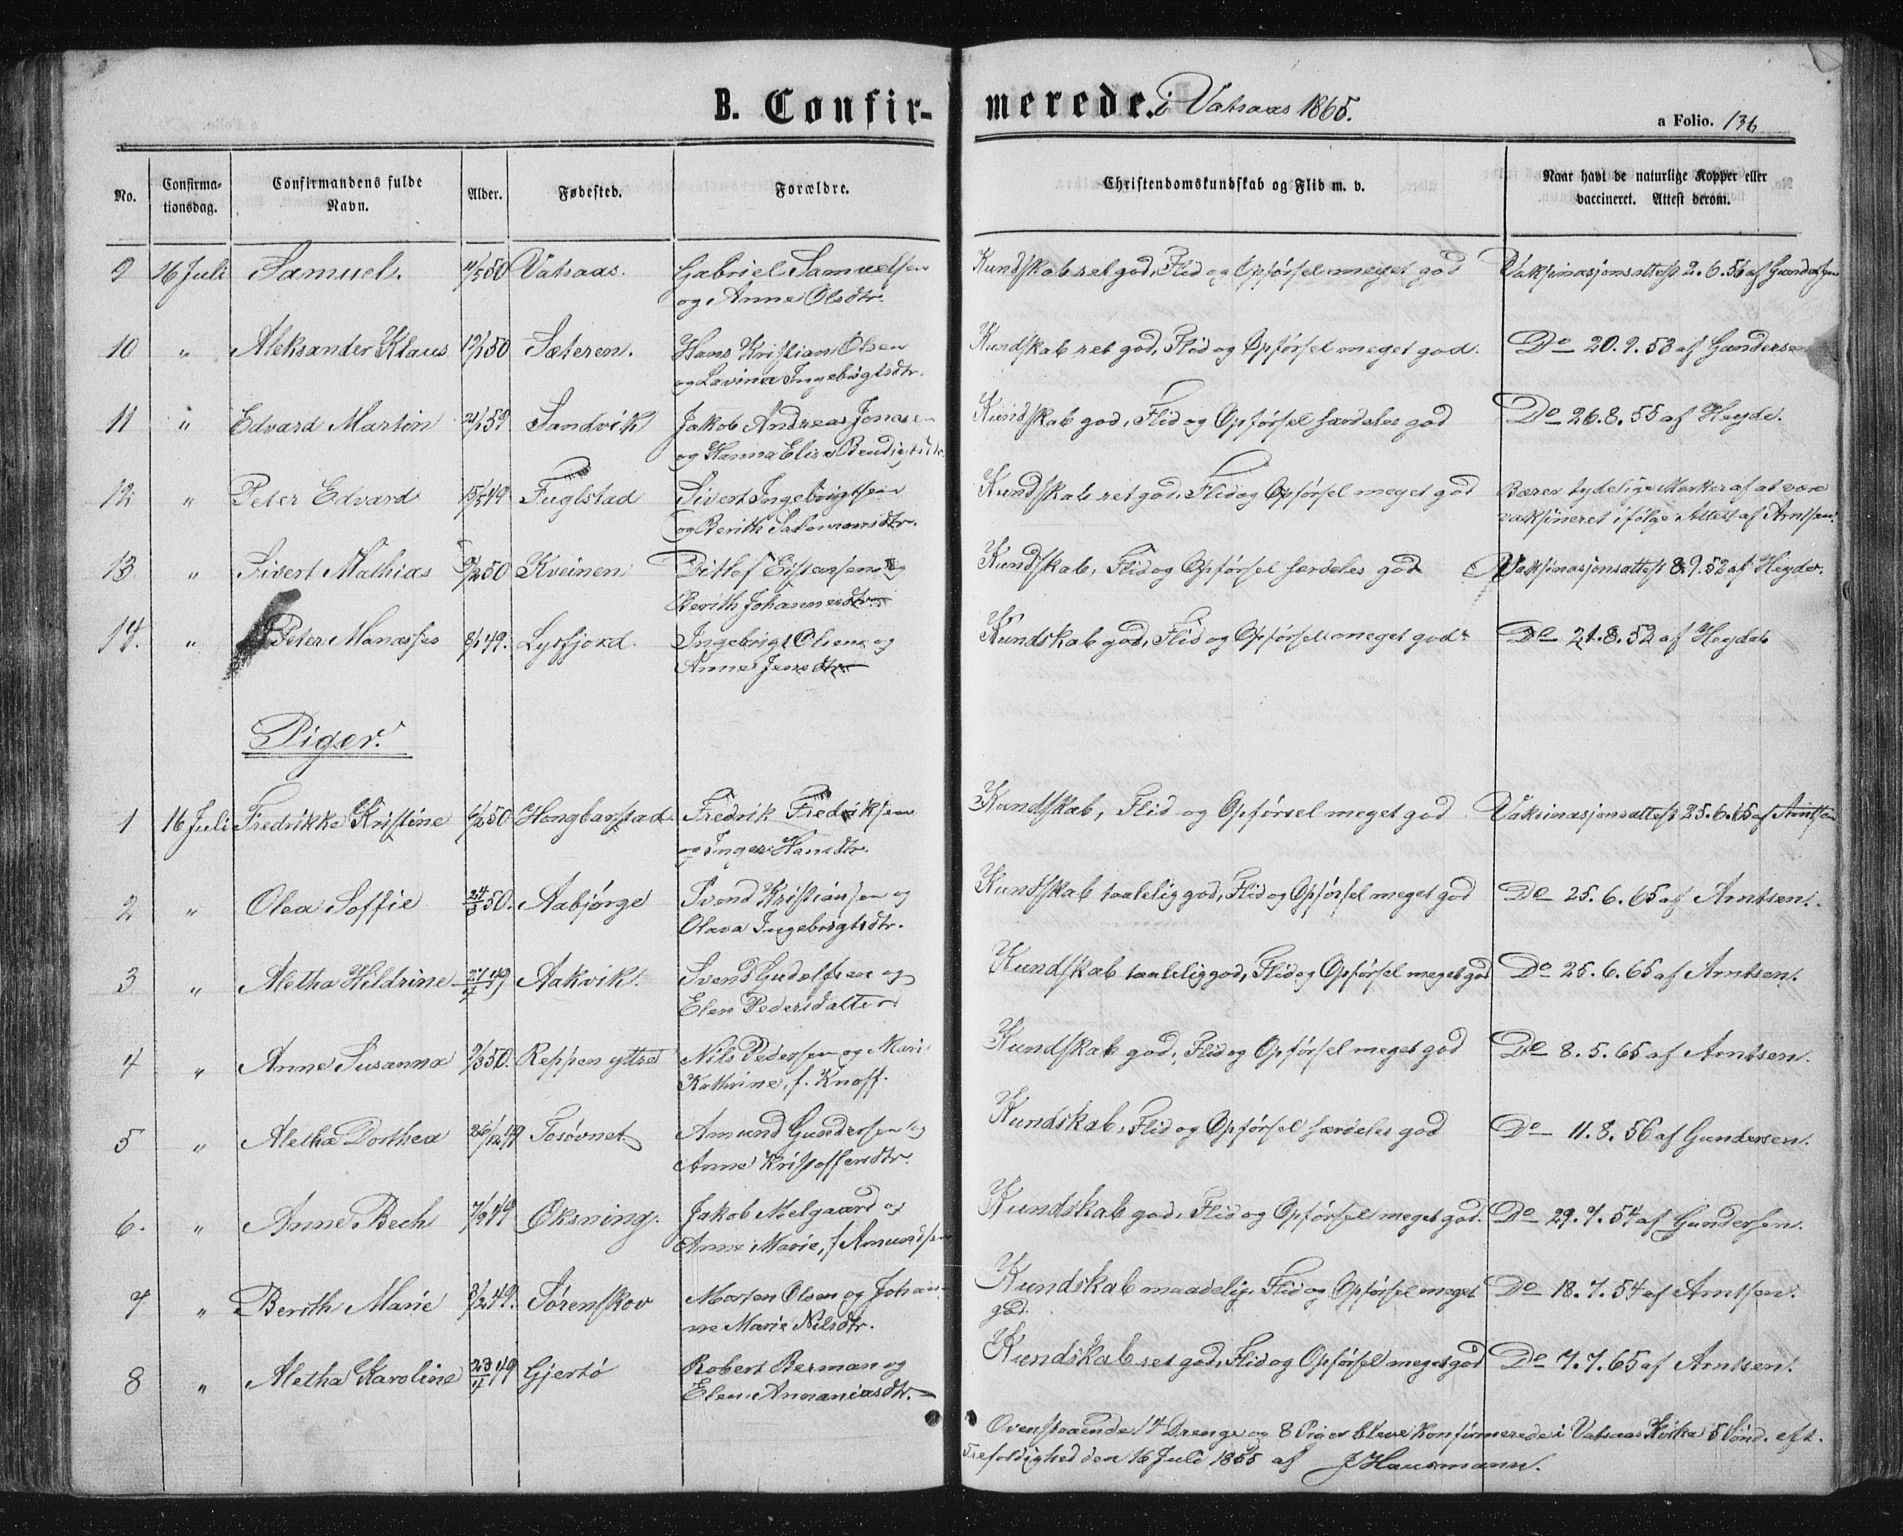 B. Confirmerede. i Vatsaas 1865. a Folio. 136
No. Confirmationsdag. Confirmandens fulde Navn. Alder. Fødested. Forældre. Christendomskundskab og Flid m. v. Naar havt de naturlige Kopper eller vaccineret. Attest derom.
9 16 Juli Samuel. 4/5 50 Vatsaas. Gabriel Samuelsen Kundskab ret god, Flid og Opførsel meget god Vaksinasjonsattest 2.6.56 af Gundersen
og Anne Olsdtr.
10 " Aleksander Klaus 50 Sæteren. Hans Kristian Olsen Kundskab ret god, Flid og Opførsel meget god. Do 20.9.53 af Gundersen
og Lavina Ingebrigtsdtr.
11 " Edvard Martin Sandvik Jakob Andreas Jonas Kundskab god, Flid og Opførsel særdeles god Do 26.8.55 af Heyde.
og Hanna Elise Bendigtsdtr.
12 " Peter Edvard 15/5 49 Fuglstad Sivert Ingebrigtsen Kundskab ret god, Flid og Opførsel meget god Bærer tydelige Mærker af at være
og Berith Salomonsdtr. vaksineret ifølge Attest af Arntsen.
13 " Sivert Mathias 50 Kveinen Ditlef Eistensen og Kundskab, Flid og Opførsel særdeles god Vaksinasjonsattest 8.9.52 af Heyde.
Berith Johannesdtr.
14. " Peter Manasses 8/1 49. Lysfjord. Ingebrigt Olsen og Kundskab god, Flid og Opførsel meget god. Do 21.8.52 af Heyde.
Anne Jensdtr.
Piger.
1 16 Juli Fredrikke Kristine 6/2 50 Hongbarstad Fredrik Fredriksen Kundskab, Flid og Opførsel meget god Vaksinasjonsattest 25.6.65 af Arntsen
og Inger Hansdtr.
2 " Olea Soffie 24/3 50. Aabjørge Svend Kristiansen og Kundskab taalelig god, Flid og Opførsel meget god Do 25.6.65 af Arntsen.
Olava Ingebrigtsdtr.
3 " Aletha Hildrine 49 Aakvik. Svend Gudolfsen og Kundskab taalelig god, Flid og Opførsel meget god Do 25.6.65 af Arntsen.
Elen Pedersdatter
4 " Anne Susanna 9/3 50. Reppen yttre Nils Pedersen og Mari Kundskab god, Flid og Opførsel meget god Do 8.5.65 af Arntsen.
Kathrine, f. Knoff.
5 " Aletha Dorthea 26/12 49 Tosøvnet Amund Gundersen og Kundskab, Flid og Opførsel særdeles god Do 11.8.56 af Gundersen.
Anne Kristoffersdtr.
6. " Anne Bech 7/9 49 Oksning. Jakob Melgaard og Kundskab god, Flid og Opførsel meget god. Do 29.7.54 af Gundersen.
Anne Marie, f Amundsen
7 " Berith Marie 3/2 49. Sørenskov Morten Olsen og Johan- Kundskab maadelig, Flid og Opførsel meget Do 18.7.54 af Arntsen.
ne Marie Nilsdtr. god.
8 " Aletha Karoline 23/4 49 Gjertø Robert Berman og Kundskab ret god, Flid og Opførsel meget god Do 7.7.65 af Arntsen.
Elen Annaniasdtr.
Ovenstaaende 14 Drenge og 8 Piger bleve konfirmerede i Vatsaas Kirke 5 Sønd. eft.
Trefoldighed den 16 Juli 1865 af J Hausmann.